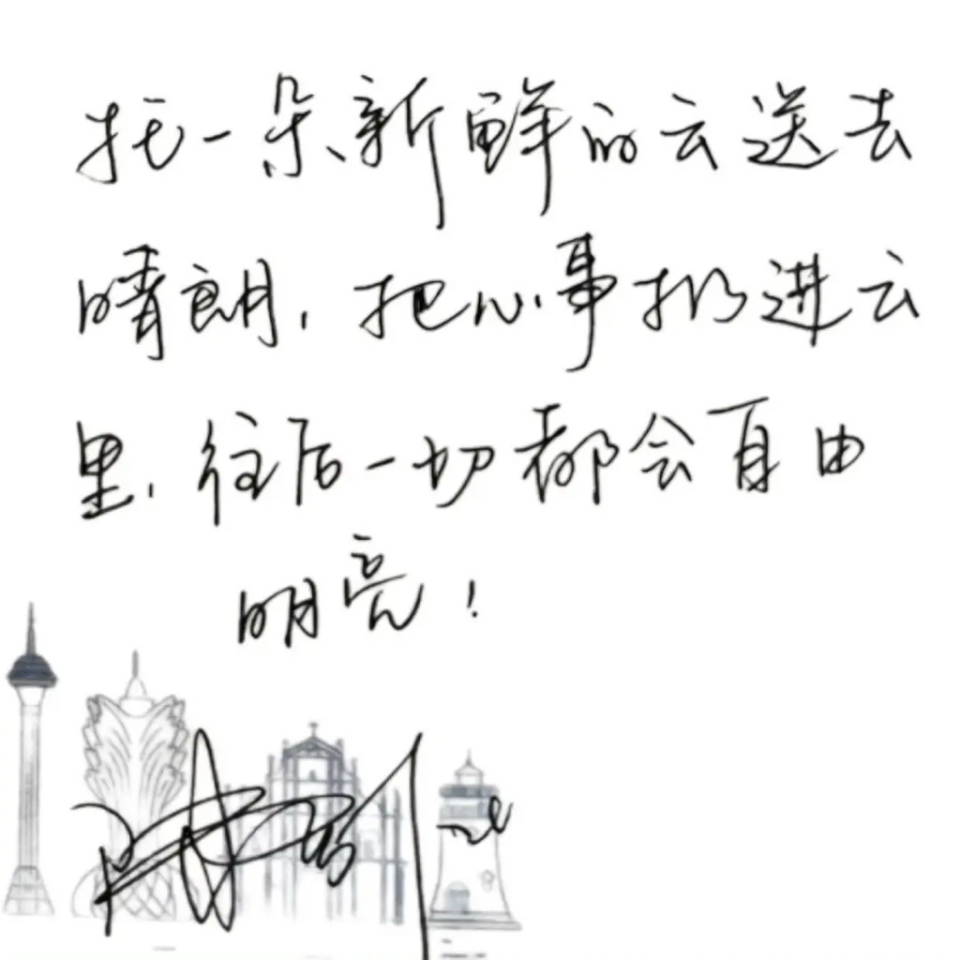 托一朵新鲜的云送去
晴朗，把心事扔进云
里，往后一切都会自由
明亮！